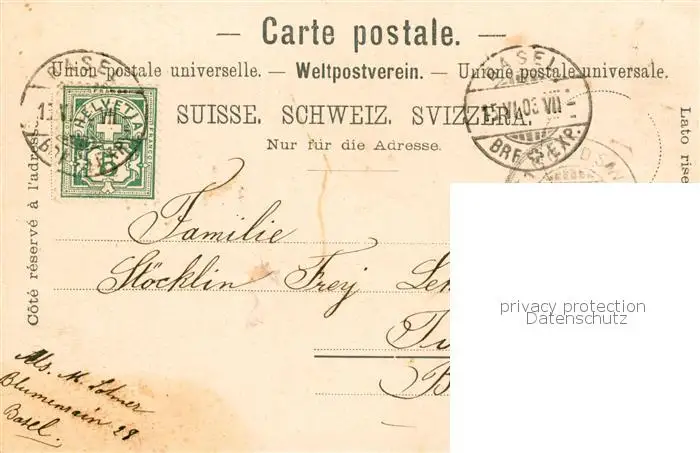 — Carte postale. —
Union postale universelle. — Weltpostverein. — Unione postale universale.
SUISSE. SCHWEIZ. SVIZZERA.
Nur für die Adresse.
Côté réservé à l'adresse.
Lato rise
HELVETIA
FRANCO
5
BASEL
BRF. EXP.
BASEL
15.VI.03 VII
BRF. EXP.
Familie
Stöcklin Frey
privacy protection
Datenschutz
Blumenrain 28
Basel.